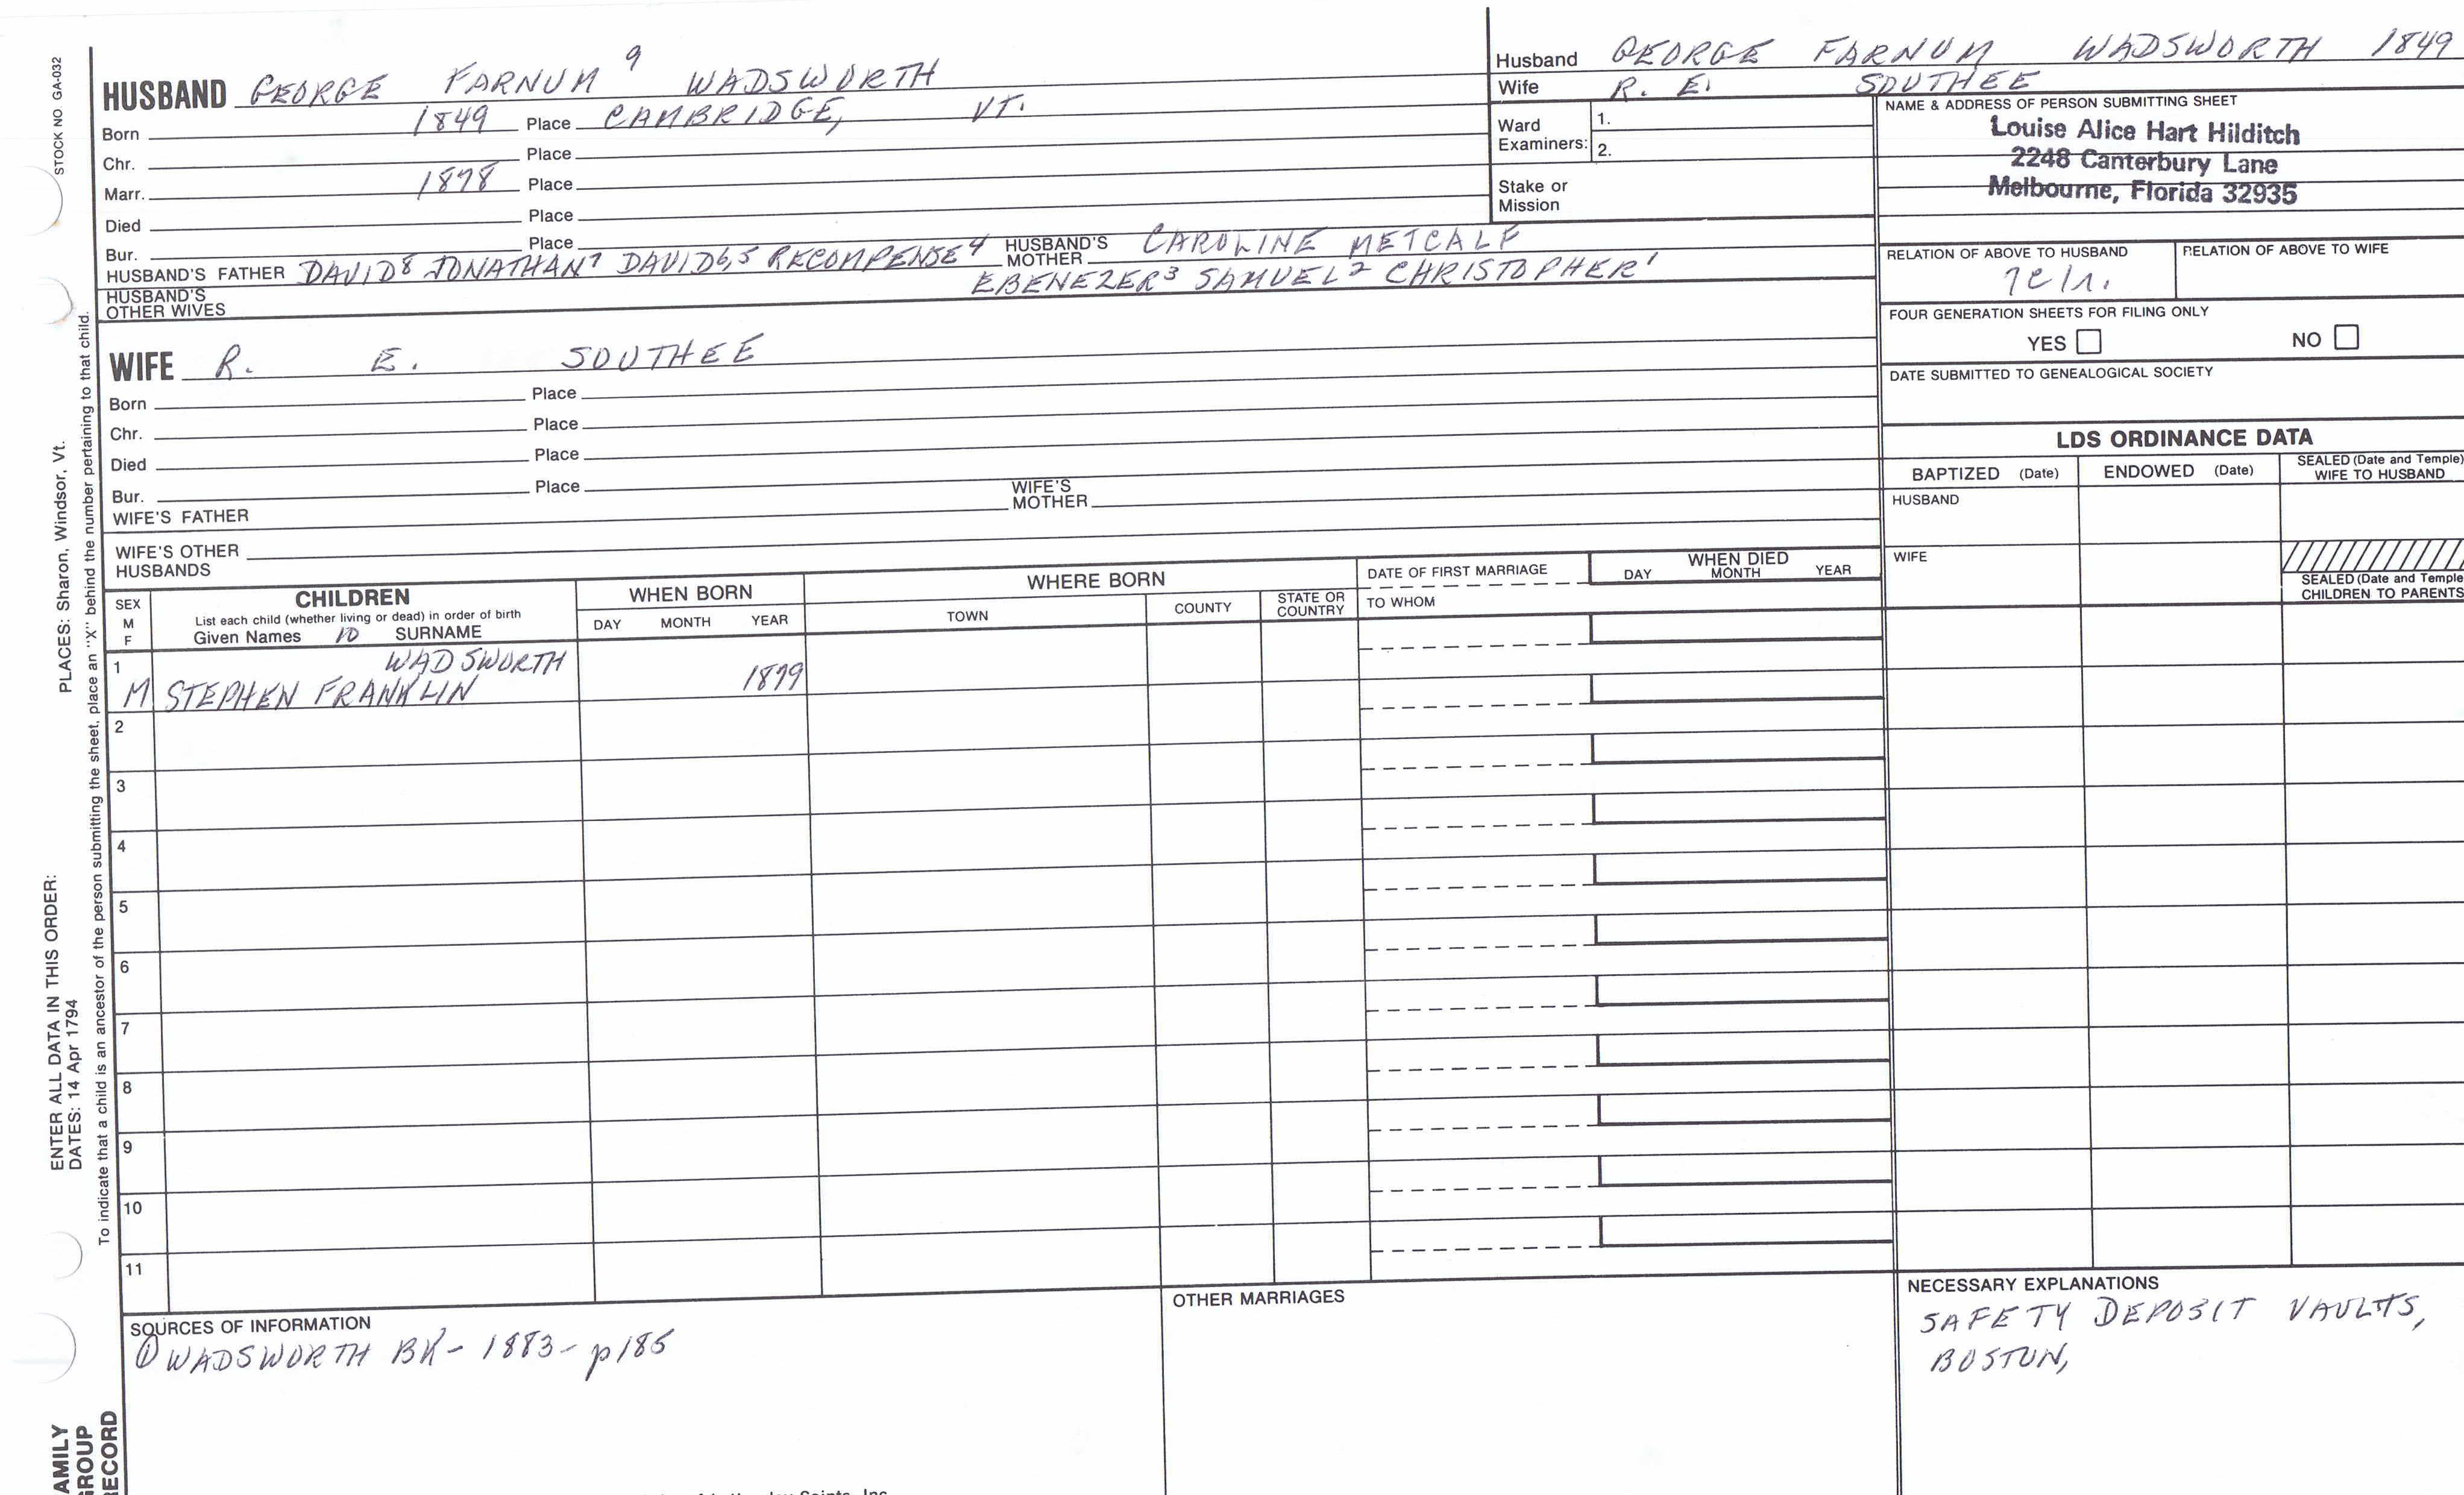 STOCK NO GA-032
PLACES: Sharon, Windsor, Vt.
ENTER ALL DATA IN THIS ORDER:
DATES: 14 Apr 1794
To indicate that a child is an ancestor of the person submitting the sheet, place an "X" behind the number pertaining to that child.
AMILY
GROUP
RECORD
HUSBAND GEORGE FARNUM 9 WADSWORTH
Born 1849 Place CAMBRIDGE, VT.
Chr. Place
Marr. 1878 Place
Died Place
Bur. Place
HUSBAND'S FATHER DAVID8 JONATHAN7 DAVID6,5 RECOMPENSE4 HUSBAND'S MOTHER CAROLINE METCALF
EBENEZER3 SAMUEL2 CHRISTOPHER1
HUSBAND'S OTHER WIVES
WIFE R. E. SOUTHEE
Born Place
Chr. Place
Died Place
Bur. Place
WIFE'S FATHER WIFE'S MOTHER
WIFE'S OTHER HUSBANDS
Husband GEORGE FARNUM WADSWORTH 1849
Wife R. E. SOUTHEE
Ward Examiners: 1.
2.
Stake or Mission
NAME & ADDRESS OF PERSON SUBMITTING SHEET
Louise Alice Hart Hilditch
2248 Canterbury Lane
Melbourne, Florida 32935
RELATION OF ABOVE TO HUSBAND RELATION OF ABOVE TO WIFE
FOUR GENERATION SHEETS FOR FILING ONLY
YES NO
DATE SUBMITTED TO GENEALOGICAL SOCIETY
LDS ORDINANCE DATA
BAPTIZED (Date) ENDOWED (Date) SEALED (Date and Temple) WIFE TO HUSBAND
HUSBAND
WIFE
SEALED (Date and Temple
CHILDREN TO PARENTS
SEX M F
CHILDREN
List each child (whether living or dead) in order of birth
Given Names 10 SURNAME
WHEN BORN
DAY MONTH YEAR
WHERE BORN
TOWN COUNTY STATE OR COUNTRY
DATE OF FIRST MARRIAGE
TO WHOM
WHEN DIED
DAY MONTH YEAR
1 WADSWORTH
M STEPHEN FRANKLIN 1879
2
3
4
5
6
7
8
9
10
11
SOURCES OF INFORMATION
① WADSWORTH BK- 1883- p185
OTHER MARRIAGES
NECESSARY EXPLANATIONS
SAFETY DEPOSIT VAULTS,
BOSTON,